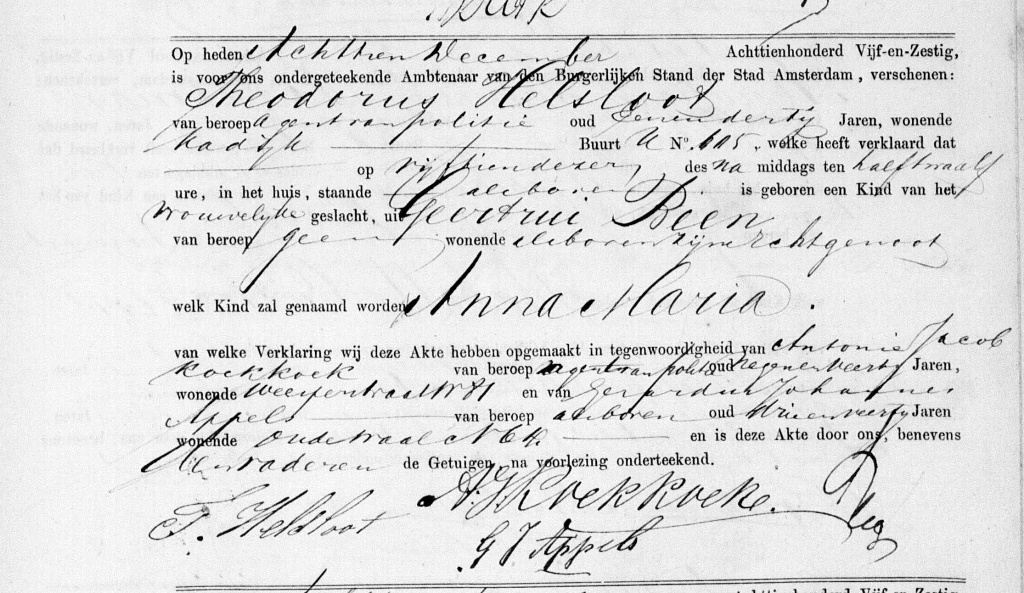 Op heden Achttien December Achttienhonderd Vijf-en-Zestig,
is voor ons ondergeteekende Ambtenaar van den Burgerlijken Stand der Stad Amsterdam, verschenen:
Theodorus Helsloot
van beroep Agent van politie oud Eenendertig Jaren, wonende
Kadijk Buurt U No. 605, welke heeft verklaard dat
op vijftiendezer des na middags ten half twaalf
ure, in het huis, staande alsboven is geboren een Kind van het
Vrouwelijke geslacht, uit Geertrui Been
van beroep geen wonende alsboven zijne Echtgenoot
welk Kind zal genaamd worden Anna Maria.
van welke Verklaring wij deze Akte hebben opgemaakt in tegenwoordigheid van Antonie Jacob
Koekkoek van beroep Agent van politie oud Negenenveertig Jaren,
wonende Weesperstraat W 81 en van Gerardus Johannes
Appels van beroep alsboven oud Drieenveertig Jaren
wonende en is deze Akte door ons, benevens
den vader en de Getuigen, na voorlezing onderteekend.
T. Helsloot A.J Koekkoek.
G J Appels